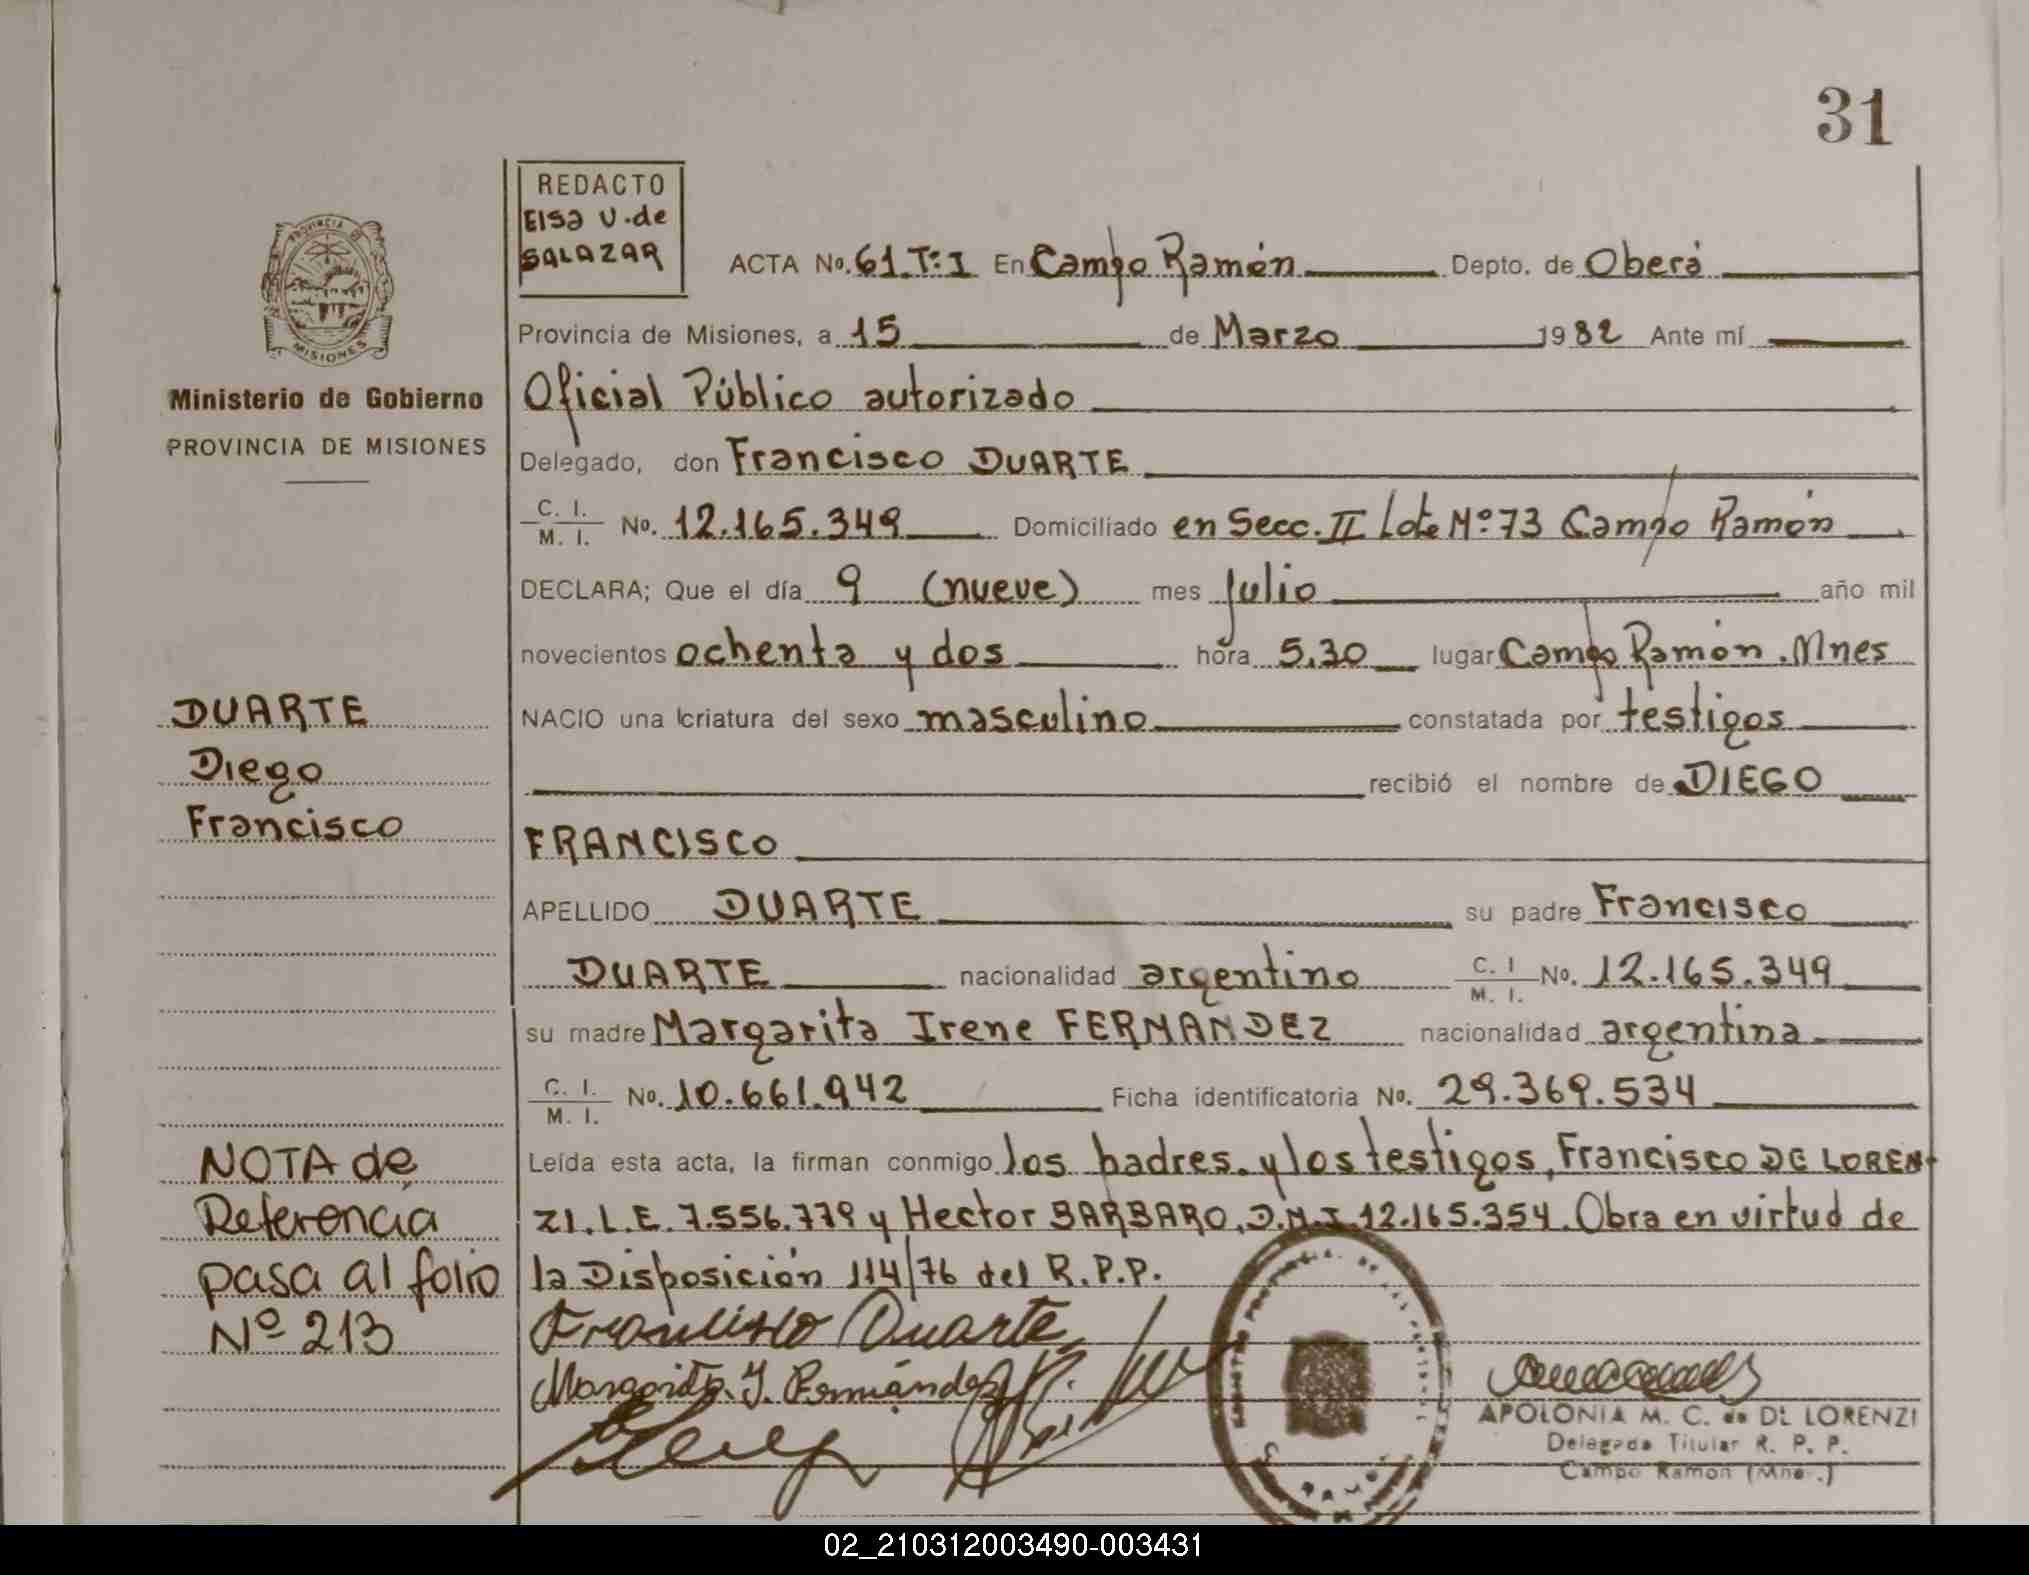 31
REDACTO
Elsa U. de
SALAZAR
PROVINCIA DE
MISIONES
Ministerio de Gobierno
PROVINCIA DE MISIONES
ACTA No. 61 T:I En Campo Ramón Depto. de Oberá
Provincia de Misiones, a 15 de Marzo 1982 Ante mí
Oficial Público autorizado
Delegado, don Francisco DUARTE
C. I. / M. I. No. 12.165.349 Domiciliado en Secc. II Lote Nº 73 Campo Ramón
DECLARA; Que el día 9 (nueve) mes Julio año mil
novecientos ochenta y dos hora 5,30 lugar Campo Ramón. Mnes
NACIO una criatura del sexo masculino constatada por testigos
recibió el nombre de DIEGO
FRANCISCO
APELLIDO DUARTE su padre Francisco
DUARTE nacionalidad argentino C. I / M. I. No. 12.165.349
su madre Margarita Irene FERNANDEZ nacionalidad argentina
C. I. / M. I. No. 10.661.942 Ficha identificatoria No. 29.369.534
Leída esta acta, la firman conmigo los padres. y los testigos, Francisco DE LOREN
ZI. L.E. 7.556.779 y Hector BARBARO, D.N.I. 12.165.354. Obra en virtud de
la Disposición 114/76 del R.P.P.
Francisco Duarte
Margarita I. Fernández
APOLONIA M. C. de DE LORENZI
Delegada Titular R. P. P.
Campo Ramon (Mnes.)
DUARTE
Diego
Francisco
NOTA de
Referencia
pasa al folio
Nº 213
02_210312003490-003431